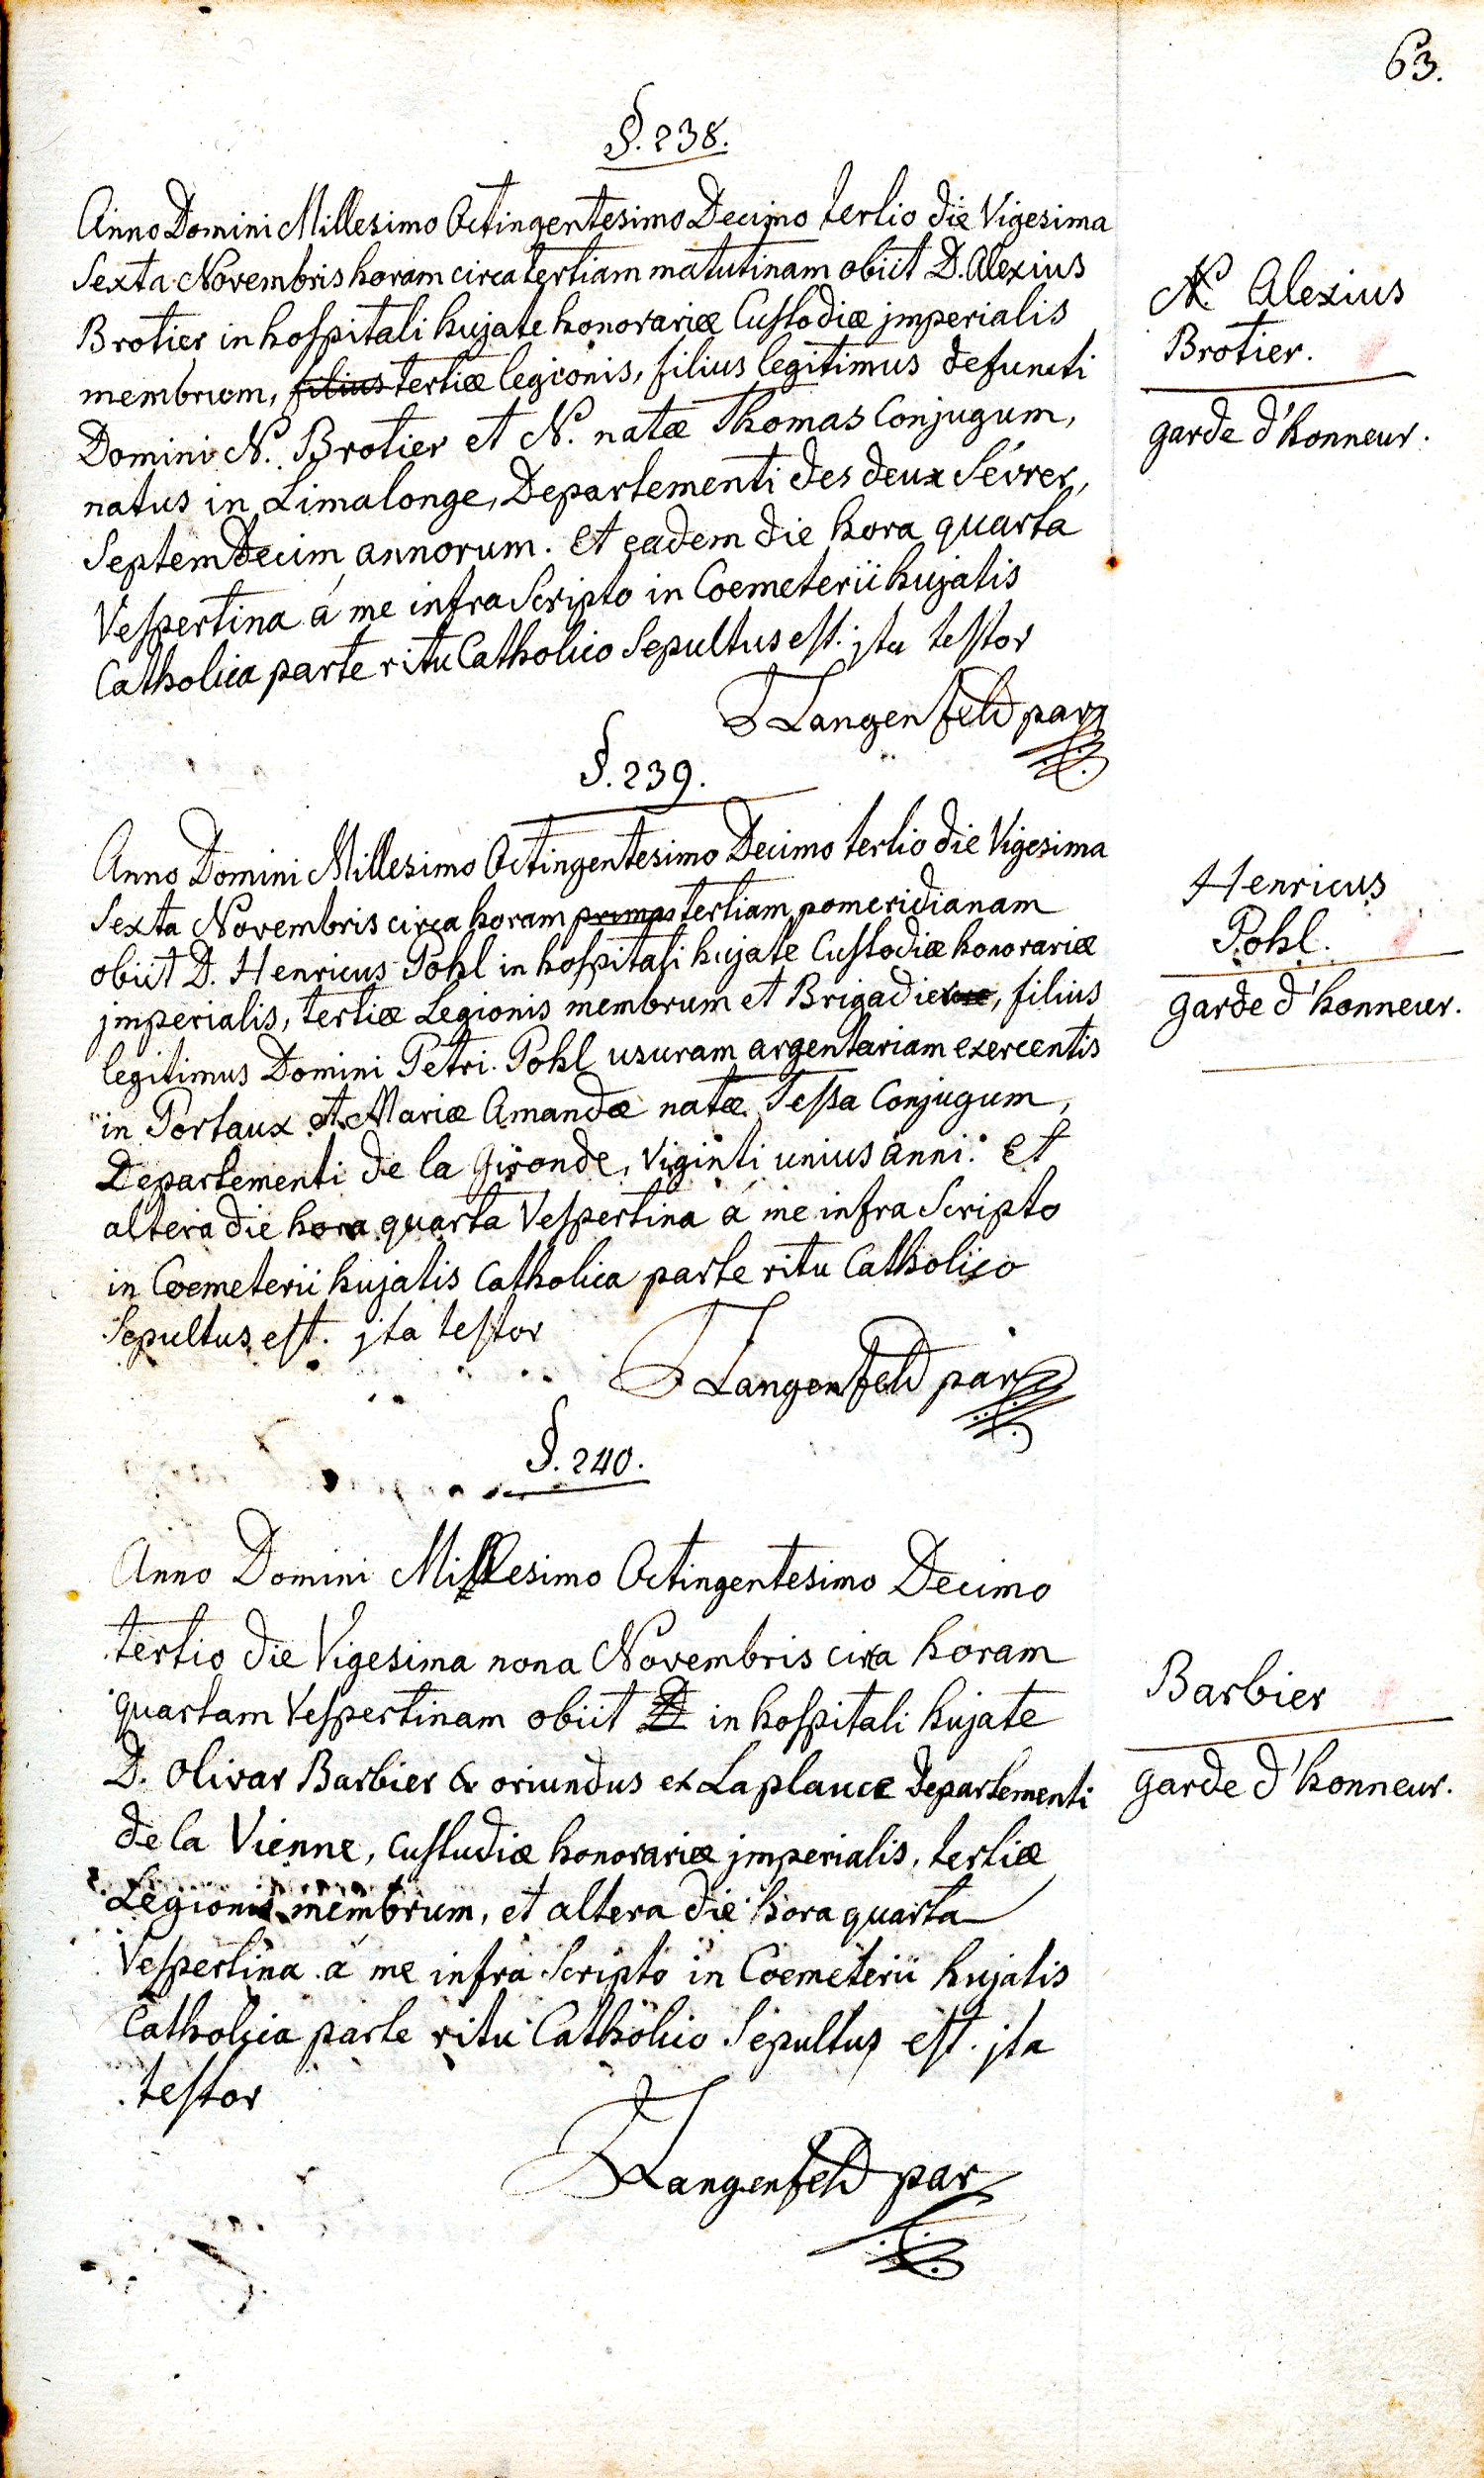 63.
§. 238.
Anno Domini Millesimo Octingentesimo Decimo tertio die Vigesima
Sexta Novembris horam circa tertiam matutinam obiit D. Alexius
Brotier in hospitali hujate honorariæ Custodiæ jmperialis
membrum, filius tertiæ legionis, filius legitimus defuncti
Domini N. Brotier et N. natæ Thomas Conjugum,
natus in Limalonge, Departementi des deux Sévres,
Septemdecim annorum. et eadem die hora quarta
Vespertina á me infra Scripto in Coemeterii hujatis
Catholica parte ritu Catholico Sepultus est. jta testor
Langenfeld par
N. Alexius
Brotier.
garde d'honneur.
§. 239.
Anno Domini Millesimo Octingentesimo Decimo tertio die Vigesima
Sexta Novembris circa horam primam tertiam pomeridianam
obiit D. Henricus Pohl in hospitali hujate Custodiæ honorariæ
jmperialis, tertiæ Legionis membrum et Brigadier, filius
legitimus Domini Petri Pohl usuram argentariam exercentis
in Portaux et Mariæ Amandæ natæ Tessa Conjugum,
Departementi de la Gironde, Viginti unius anni. et
altera die hora quarta Vespertina á me infra Scripto
in Coemeterii hujatis Catholica parte ritu Catholico
Sepultus est. jta testor
Langenfeld par
Henricus
Pohl.
garde d'honneur.
§. 240.
Anno Domini Millesimo Octingentesimo Decimo
tertio die Vigesima nona Novembris circa horam
quartam Vespertinam obiit D in hospitali hujate
D. Olivar Barbier oriundus ex Laplauce Departementi
de la Vienne, Custudiæ honorariæ jmperialis, tertiæ
Legionis membrum, et altera die hora quarta
Vespertina á me infra Scripto in Coemeterii hujatis
Catholica parte ritu Catholico Sepultus est. jta
testor
Langenfeld par
Barbier
garde d'honneur.